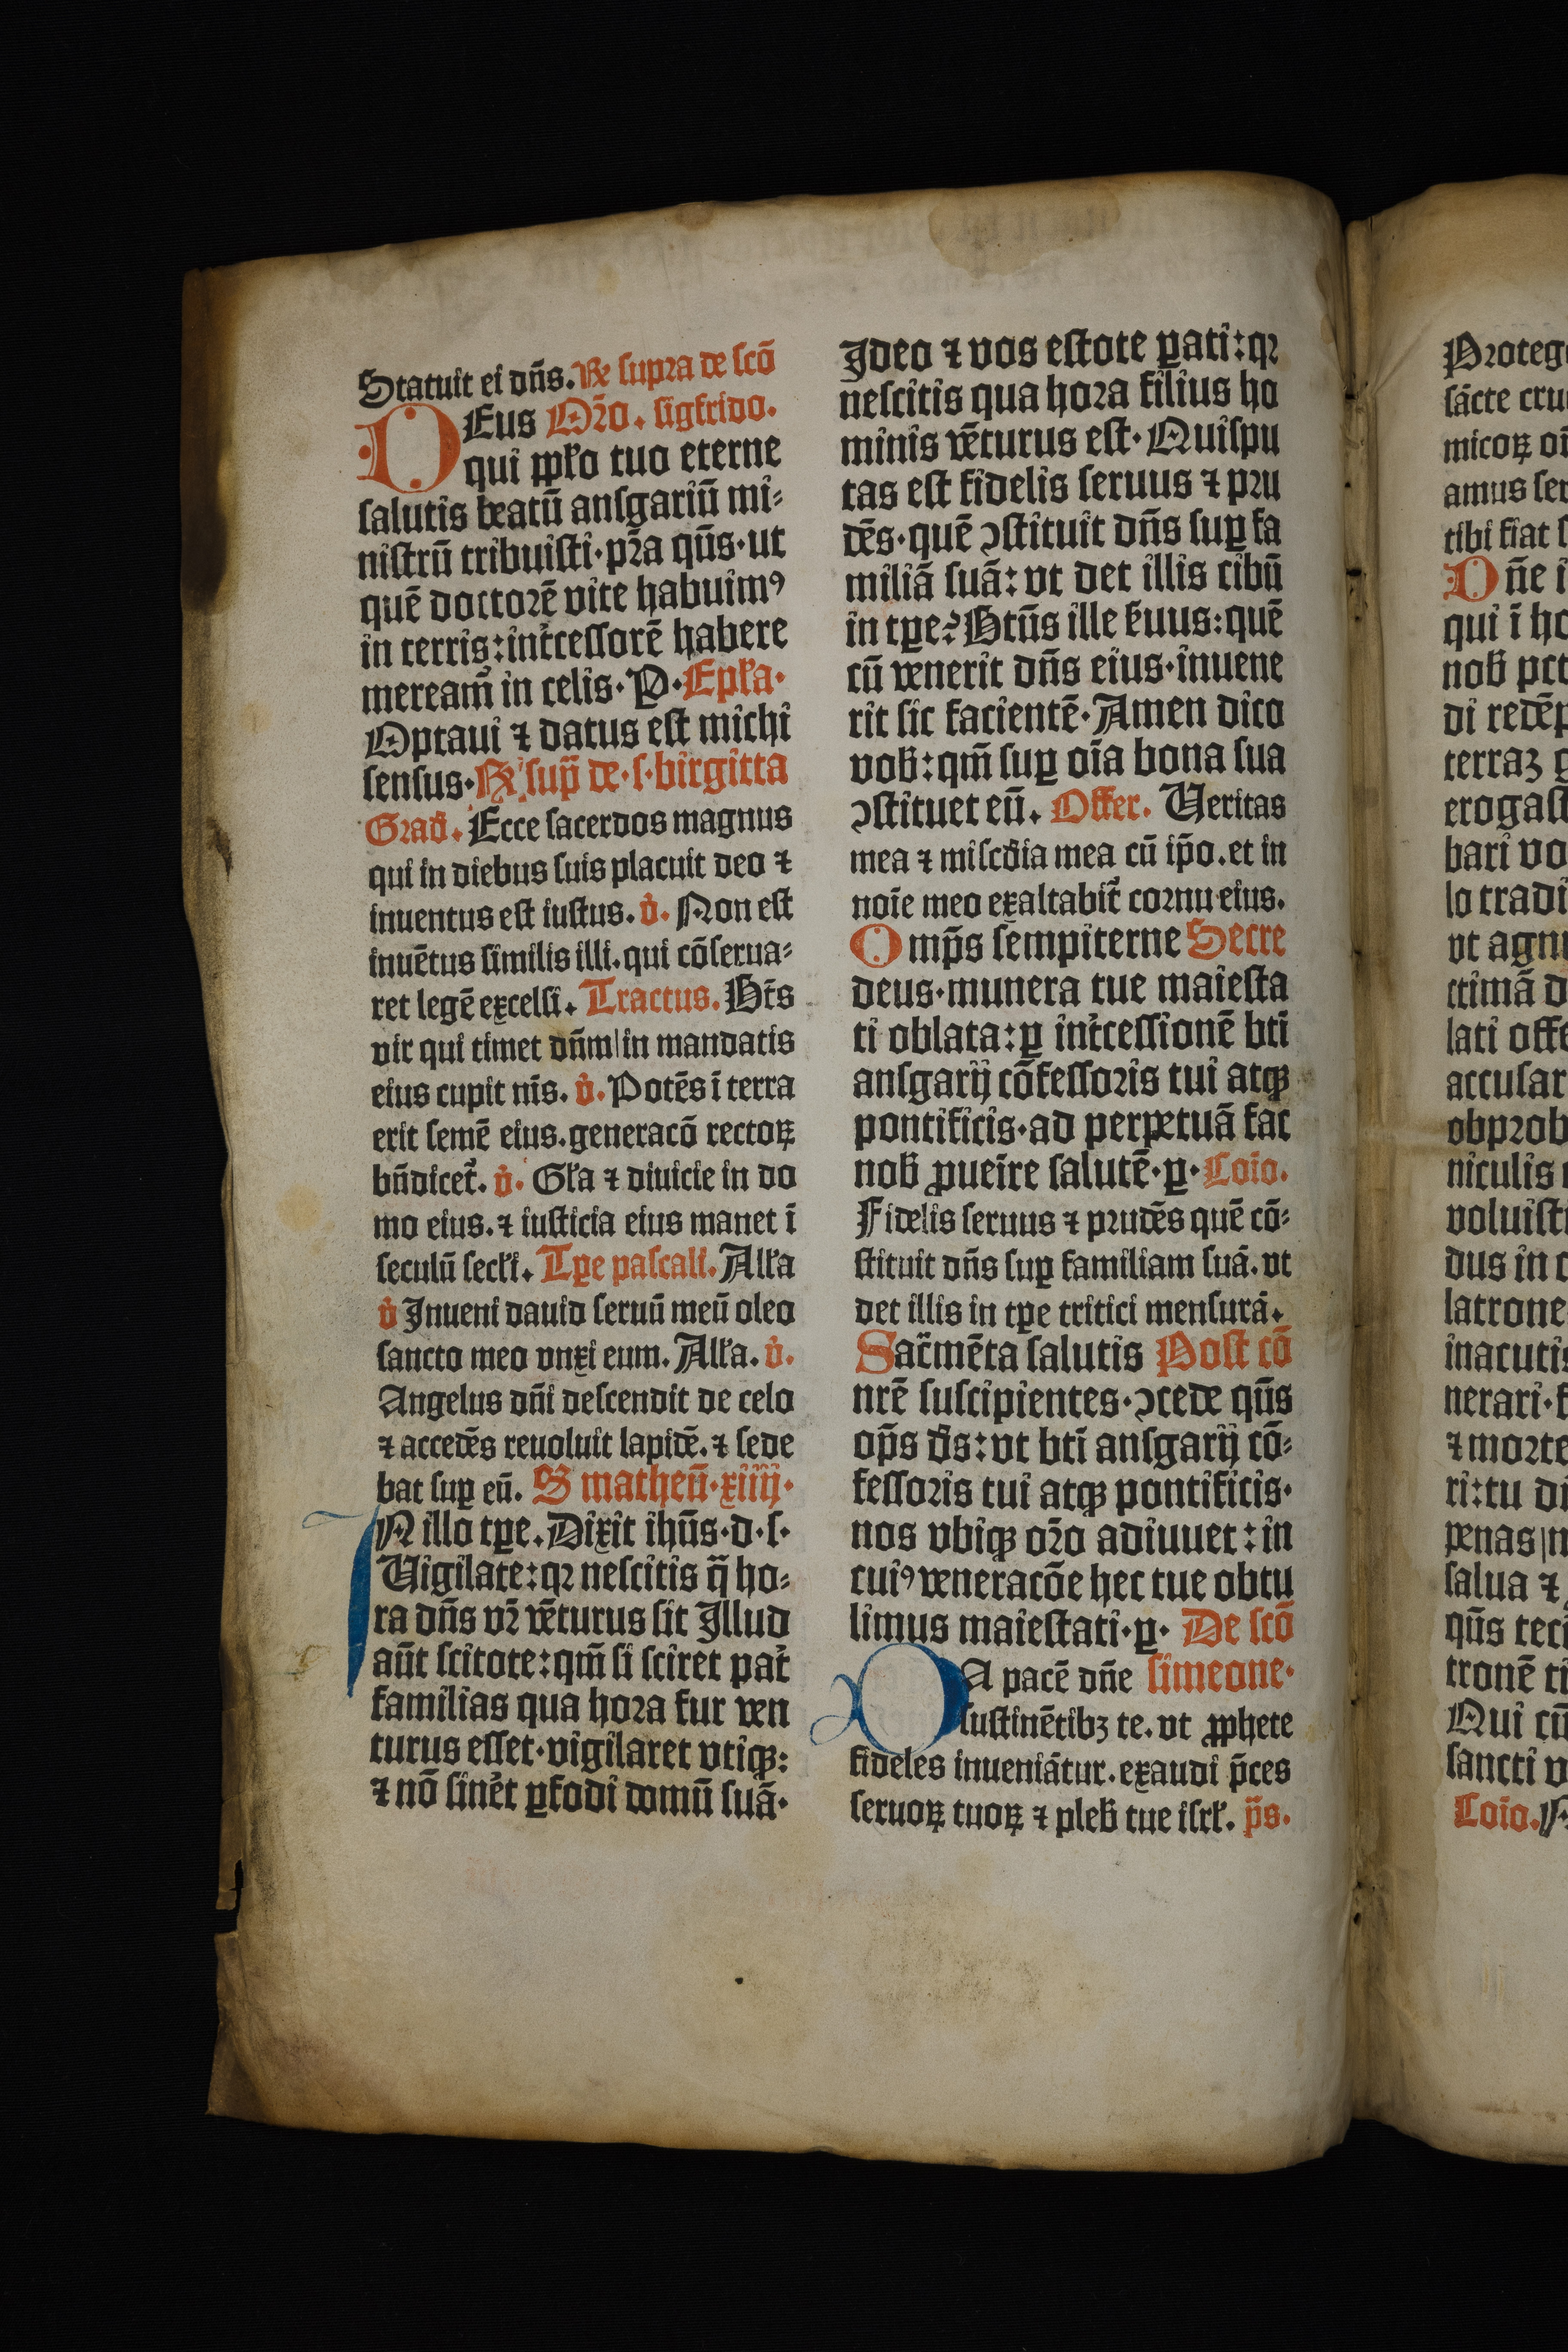 Statuit ei dn̄s. Re supra de scō
DEus Or̄o. sigfrido.
qui ꝓpl̓o tuo eterne
salutis beatū ansgariū mi⸗
nistrū tribuisti·pr̄a qūs·ut
quē doctorē vite habuimꝰ
in terris:int̓cessorē habere
meream̄ in celis·P·Epl̓a·
Optaui ⁊ datus est michi
sensus·Re sup̄ de·s·birgitta
Grad̓. Ecce sacerdos magnus
qui in diebus suis placuit deo ⁊
inuentus est iustus. v̓. Non est
inuētus similis illi. qui cōserua⸗
ret legē excelsi. Tractus. Bt̄s
vir qui timet dn̄m|in mandatis
eius cupit nīs. v̓. Potēs ī terra
erit semē eius. generacō rectoꝝ
bn̄dicet̓. v̓. Gl̓a ⁊ diuicie in do
mo eius. ⁊ iusticia eius manet ī
seculū secl̓i. Tꝑe pascali. All̓a
v̓ Inueni dauid seruū meū oleo
sancto meo vnxi eum. All̓a. v̓.
Angelus dn̄i descendit de celo
⁊ accedēs reuoluit lapidē. ⁊ sede
bat suꝑ eū. S matheū·xiiij·
IN illo tꝑe. Dixit ihūs·d·s·
Vigilate:qꝛ nescitis q̄ ho⸗
ra dn̄s vr̄ vēturus sit Illud
aūt scitote:qm̄ si sciret pat̓
familias qua hora fur ven
turus esset·vigilaret vtiqꝫ:
⁊ nō sinēt ꝑfodi domū suā·
Ideo ⁊ vos estote ꝑati:qꝛ
nescitis qua hora filius ho
minis vēturus est·Quispu
tas est fidelis seruus ⁊ pru
dēs·quē ꝯstituit dn̄s suꝑ fa
miliā suā: vt det illis cibū
in tꝑe? Btūs ille s̓uus:quē
cū venerit dn̄s eius·inuene
rit sic facientē·Amen dico
vob̓:qm̄ suꝑ oīa bona sua
ꝯstituet eū. Offer. Veritas
mea ⁊ miscd̓ia mea cū ip̄o. et in
noīe meo exaltabit̓ cornu eius.
Omp̄s sempiterne Secre
deus·munera tue maiesta
ti oblata: ꝑ int̓cessionē bti̅
ansgarij cōfessoris tui atqꝫ
pontificis·ad perpetuā fac
nob̓ ꝓueīre salutē·ꝑ·Coīo.
Fidelis seruus ⁊ prudēs quē cō⸗
stituit dn̄s suꝑ familiam suā. vt
det illis in tꝑe tritici mensurā.
Sac̄mēta salutis Post cō
nrē suscipientes·ꝯcede qūs
op̄s d̓s: vt bti̅ ansgarij cō⸗
fessoris tui atqꝫ pontificis·
nos vbiqꝫ oro̅ adiuuet: in
cuiꝰ veneracōe hec tue obtu
limus maiestati·ꝑ· De scō
DA pacē dn̄e simeone·
sustinētibꝫ te. vt ꝓphete
fideles inueniātur. exaudi p̄ces
seruoꝝ tuoꝝ ⁊ pleb̓ tue isrl̓. p̄s.
Proteg
sācte cru
micoꝝ
amus
tibi fiat
Dn̄e
qui ī
nob̓
di
terraꝫ
erogast
bari
lo tradi
vt agn
ctimā
lati
accusar
obprob
niculis
voluist
dus in
latrone
inacutis
nerari·
⁊ morte
ri: tu
penas
salua ⁊
qūs
tronē
Qui cū
sancti
Coīo.